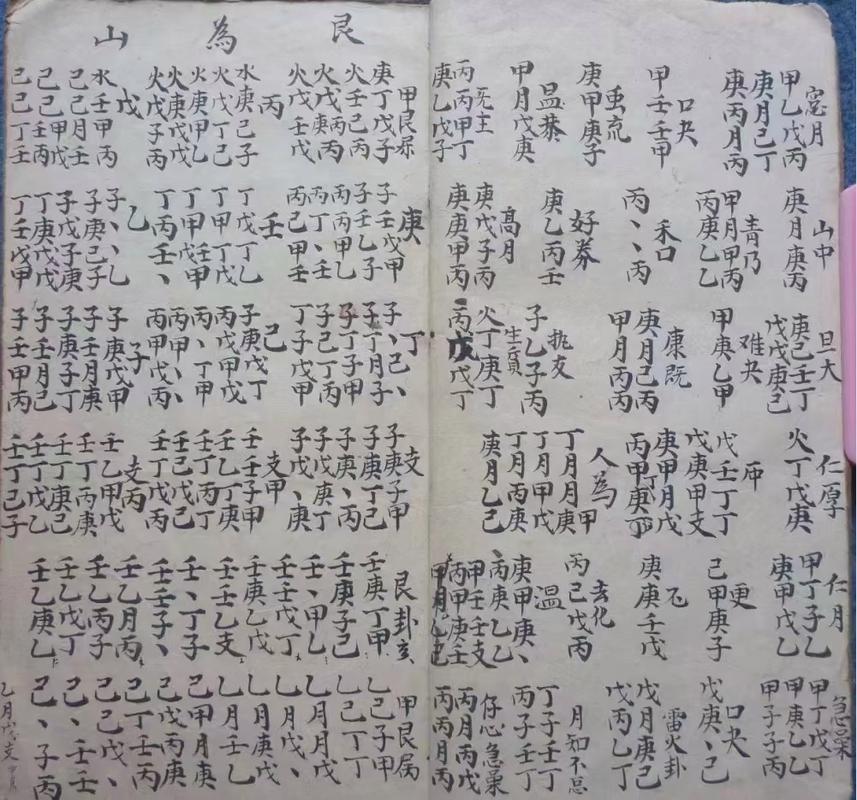 窓月
甲乙戊丙
庚月己丁
庚丙月丙
口夬
甲壬壬甲
虫㐬
庚甲庚子
昷恭
甲月戊庚
旡主
丙丙甲丁
庚乙戊子
山中
庚月庚丙
青乃
甲月甲丙
丙庚乙乙
禾口
丙、、丙
好券
庚乙丙壬
高月
庚戊子丙
庚庚甲丙
旦大
庚己壬丁
戊戊庚己
难夬
甲庚乙甲
康既
庚月己丙
甲月丙丙
子乙子丙
火丁庚丁
丙戊戊丁
仁厚
火丁戊庚
戊壬丁丁
戊庚甲支
庚甲月戊
丙甲庚丁
人為
丁月月庚甲
丁月甲戊
丁月丙庚
庚月乙己
仁月
甲丁子乙
庚甲戊乙
更
己甲庚子
庚庚壬戊
去化
丙己戊丙
温
庚甲庚、
丙庚乙乙
甲壬壬支
丙甲庚壬
急
甲丁戊丁
甲庚乙乙
甲子子丙
口夬
戊庚、己
雷火卦
戊月庚己
戊丙乙丁
月知不忌
丁子壬丁
丙子壬
仔心急
丙月戊丙
丙丙月丙
艮為山
甲艮
庚丁戊子
火壬己丙
火戊庚丙
火戊壬戊
丙
水庚己子
火戊丁己
火庚甲乙
火庚戊戊
火戊子丙
戊
水壬甲丙
己己月壬
己己甲戊
己壬丙
己己丁壬
庚
子壬戊甲
子壬乙子
丙丙甲乙
丙丁、壬
丙己甲壬
壬
丁戊丁乙
丁甲丁戊
丁甲壬甲
丁丙壬、
乙
子、、乙
子庚己子
子戊子庚
丁庚戊戊
丁壬戊甲
丁
子、己、
子丁月子
子丁子甲
子己丁丙
丁子戊甲
己
子庚戊丁
丙戊甲戊
丙、丁甲
丙甲、、
丙甲戊丙
子
子庚戊甲
子壬月庚
子庚子丁
子壬月己
子壬甲丙
支
子庚子甲
子庚丁己
子庚、丙
子戊庚丁
子戊、庚
支甲
壬壬子甲
壬乙丁庚
壬丁丙丁
壬己戊己
壬丁戊丙
支丙
壬乙甲戊
壬丁丙庚
壬丁庚己
壬丁戊乙
壬丁己子
艮卦亥
壬庚丁甲
壬庚子己
壬、甲乙
壬壬戊丁
壬庚乙戊
壬壬乙支
壬、丁子
壬壬子、
壬乙月丙
壬乙丙子
壬乙戊丁
壬乙庚乙
甲艮属
乙己子甲
乙己丁丁
乙月月戊
乙月戊、
乙月庚戊
乙月壬乙
己甲月庚
己戊丙庚
己丁壬丙
己己戊、
己、壬壬
己、子丙